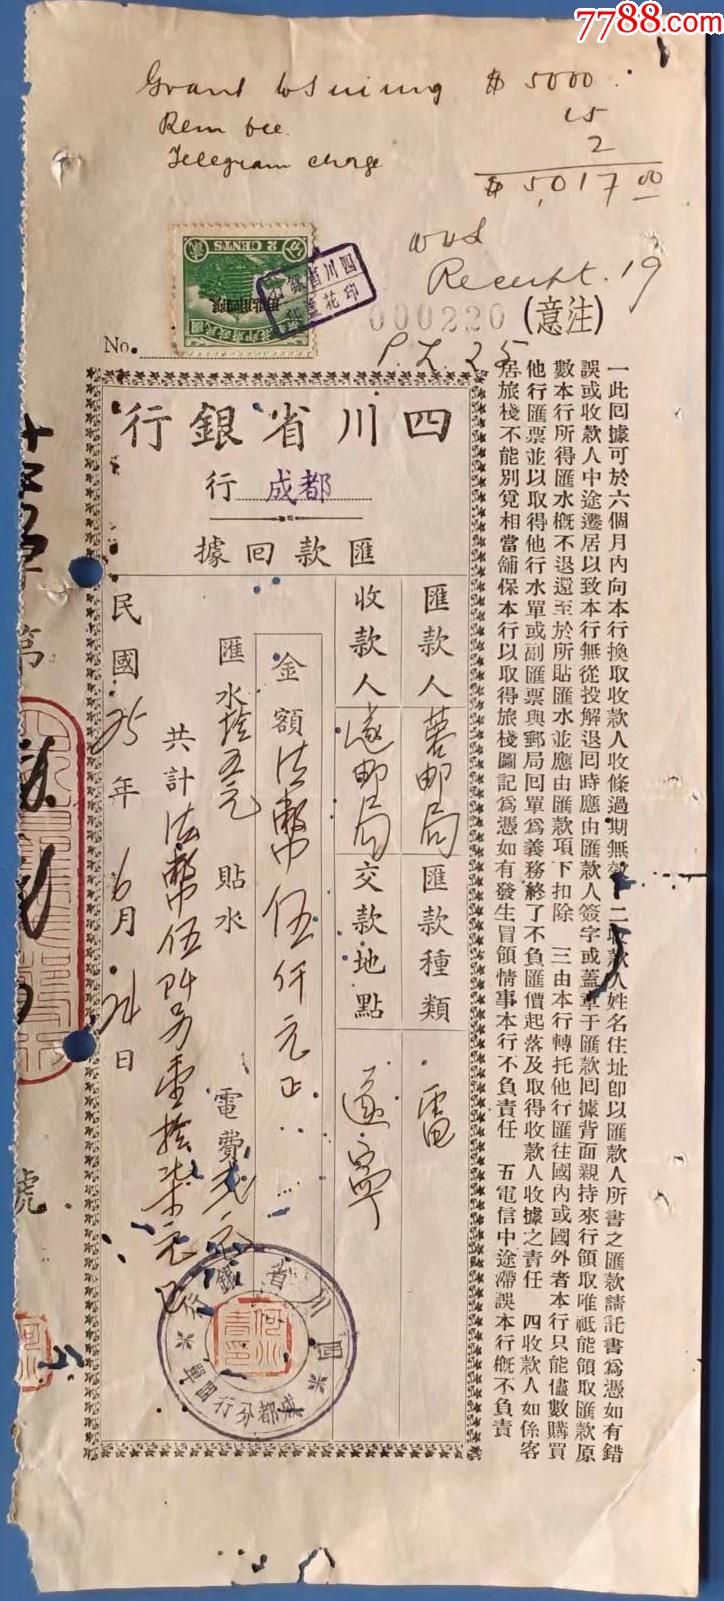 7788.com
Grant to Suining $ 5000.
Rem fee. 15
Telegram charge 2
$ 5,017 00
Receipt. 19
P.L. 25
分 2 CENTS 貳
四川省銀行
印花
000220
No.
四川省銀行
成都行
匯款回據
匯款人 蓉郵局 匯款種類 電
收款人 遂郵局 交款地點 遂寧
金額 法幣伍仟元正
匯水 拾五元 貼水 電費 貳元
共計 法幣伍阡另壹拾柒元正
民國25年6月24日
四川省銀行
成都分行
第
號
(注意)
一此回據可於六個月內向本行換取收款人收條過期無效 二收款人姓名住址卽以匯款人所書之匯款請託書爲憑如有錯
誤或收款人中途遷居以致本行無從投解退回時應由匯款人簽字或蓋章于匯款回據背面親持來行領取唯祗能領取匯款原
數本行所得匯水槪不退還至於所貼匯水並應由匯款項下扣除 三由本行轉托他行匯往國內或國外者本行只能儘數購買
他行匯票並以取得他行水單或副匯票與郵局回單爲義務終了不負匯價起落及取得收款人收據之責任 四收款人如係客
居旅棧不能別覓相當舖保本行以取得旅棧圖記爲憑如有發生冒領情事本行不負責任 五電信中途滯誤本行槪不負責